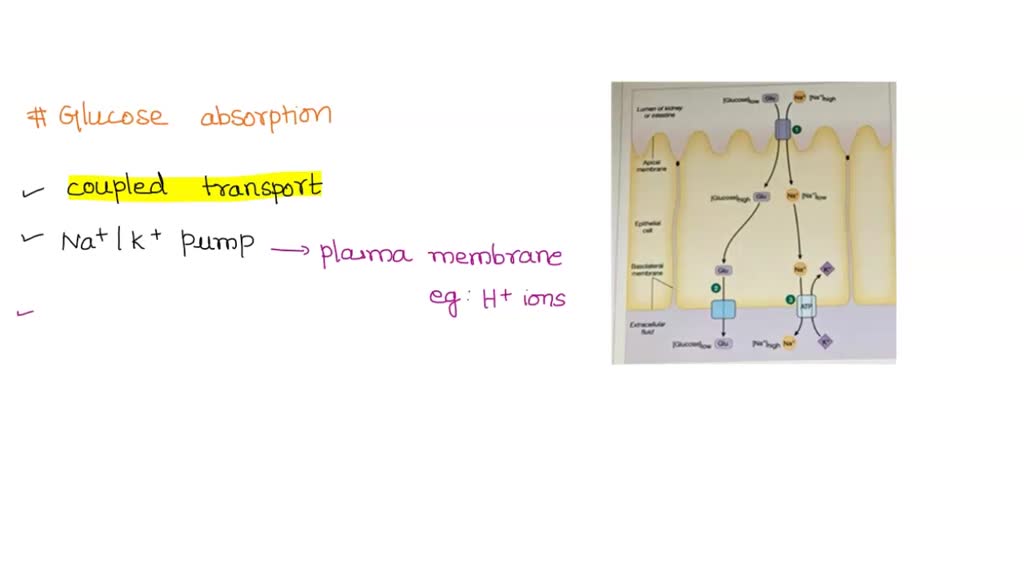 # Glucose absorption
✓ coupled transport
✓ Na⁺ | K⁺ pump → plasma membrane
eg: H⁺ ions
[Glucose]low Glu Na⁺ [Na⁺]high
Lumen of kidney
or intestine
1
Apical
membrane
[Glucose]high Glu Na⁺ [Na⁺]low
Epithelial
cell
Basolateral
membrane
Glu Na⁺ K⁺
2
3
ATP
Extracellular
fluid
[Glucose]low Glu [Na⁺]high Na⁺ K⁺